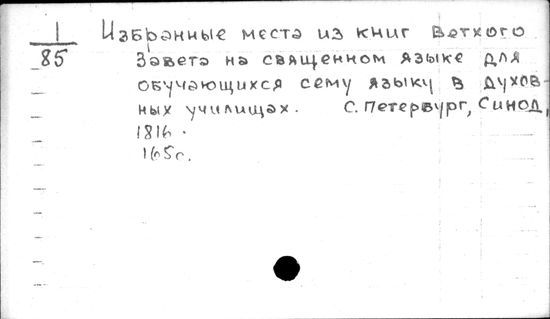 1
85
Избранные места из книг Ветхого
Завета на священном языке для
обучающихся сему языку в духов-
ных училищах. С. Петербург, Синод,
1816.
165с.